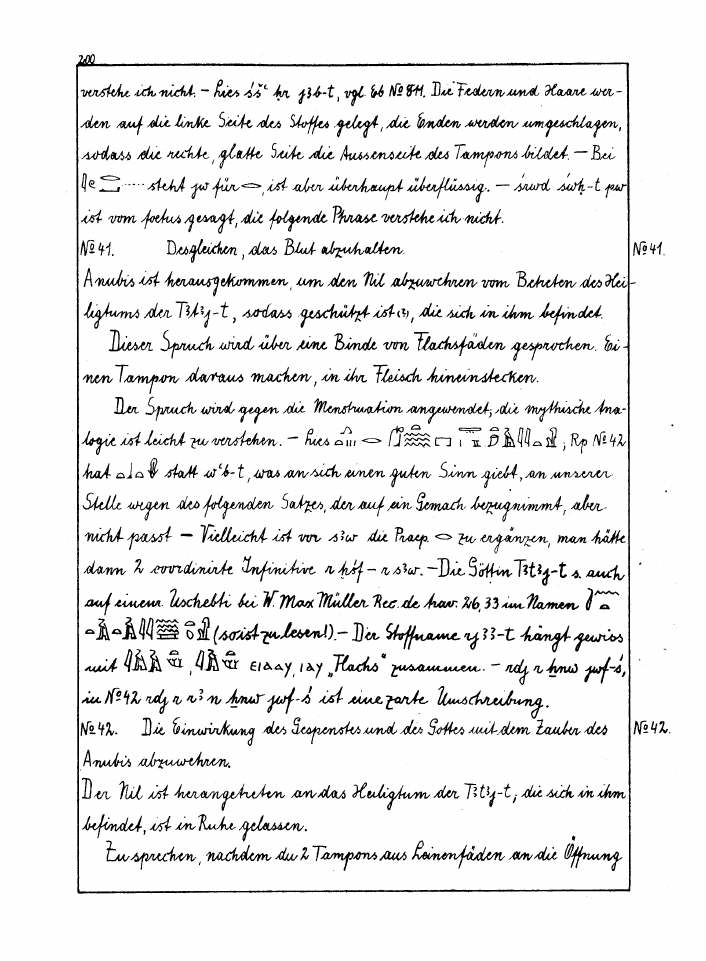 200
verstehe ich nicht. – Lies śšʿ ḥr ȝb-t, vgl Eb № 811. Die Federn und Haare wer-
den auf die linke Seite des Stoffes gelegt, die Enden werden umgeschlagen,
sodass die rechte, glatte Seite die Aussenseite des Tampons bildet. – Bei
steht jw für 𓂋, ist aber überhaupt überflüssig. – śrwd św -t pw
ist vom foetus gesagt, die folgende Phrase verstehe ich nicht.
№ 41. Desgleichen, das Blut abzuhalten. № 41.
Anubis ist herausgekommen, um den Nil abzuwehren vom Betreten des Hei-
ligtums der Tȝtȝj-t, sodass geschützt ist (?), die sich in ihm befindet.
Dieser Spruch wird über eine Binde von Flachsfäden gesprochen. Ei-
nen Tampon daraus machen, in ihr Fleisch hineinstecken.
Der Spruch wird gegen die Menstruation angewendet; die mythische Ana-
logie ist leicht zu verstehen. – Lies ; Rp № 42
hat statt wʿb-t, was an sich einen guten Sinn giebt, an unserer
Stelle wegen des folgenden Satzes, der auf ein Gemach bezugnimmt, aber
nicht passt – Vielleicht ist vor sȝw die Praep. 𓂋 zu ergänzen, man hätte
dann 2 coordinirte Infinitive r ḥśf – r sȝw. – Die Göttin Tȝtȝj-t s. auch
auf einem Uschebti bei W. Max Müller Rec. de trav. 26, 33 im Namen
(so ist zu lesen!). – Der Stoffname rjȝȝ-t hängt gewiss
mit , ⲉⲓⲁⲁⲩ, ⲓⲁⲩ „Flachs" zusammen. – rdj r ẖnw jwf-ś,
in № 42 rdj r rȝ n ẖnw jwf-ś ist eine zarte Umschreibung.
№ 42. Die Einwirkung des Gespenstes und des Gottes mit dem Zauber des № 42.
Anubis abzuwehren.
Der Nil ist herangetreten an das Heiligtum der Tȝtȝj-t; die sich in ihm
befindet, ist in Ruhe gelassen.
Zu sprechen, nachdem du 2 Tampons aus Leinenfäden an die Öffnung